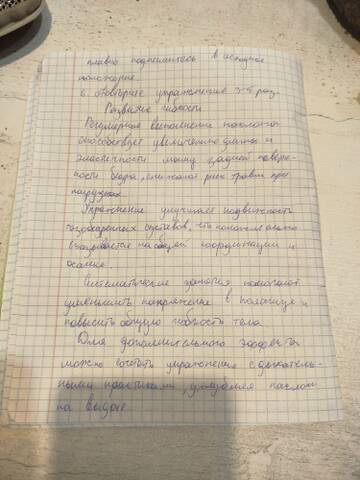 плавно поднимитесь в исходное
положение.
6. повторите упражнение 3-5 раз.
Развитие гибкости
Регулярное выполнение наклонов
способствует увеличению длины и
эластичности мышц задней поверх-
ности бедра, снижают риск травм при
нагрузках.
Упражнение улучшает подвижность
тазобедренных суставов, что положительно
сказывается на общей координации и
осанке.
Систематические занятия помогают
уменьшить напряжение в пояснице и
повысить общую гибкость тела.
Для дополнительного эффекта
можно сочетать упражнение с дыхатель-
ными практиками, наклон
на выдохе.